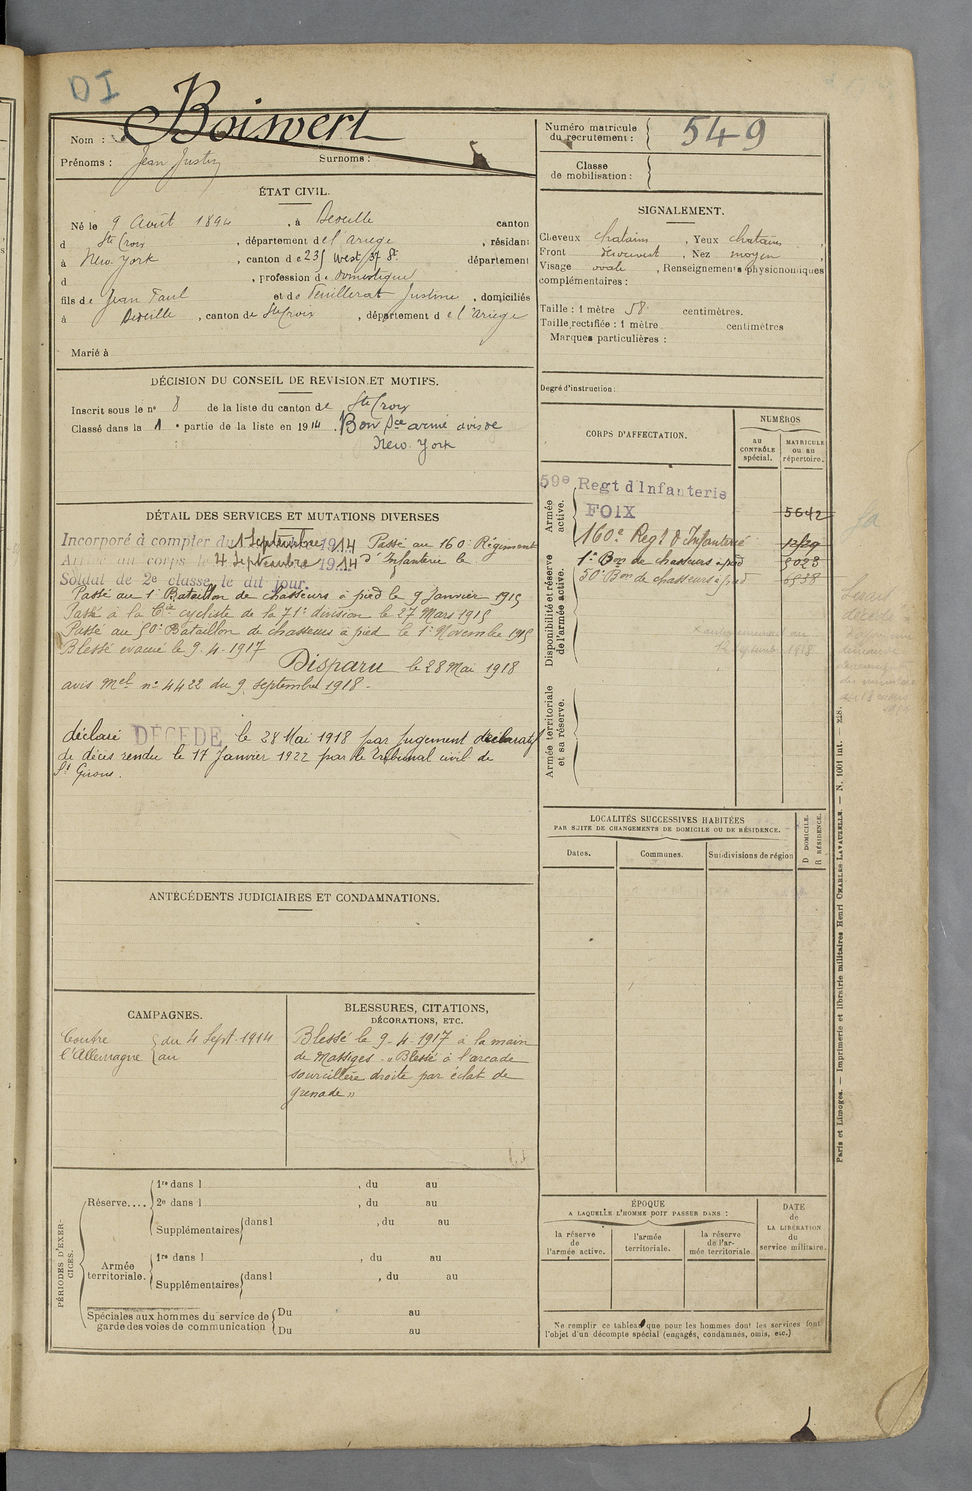 DI
Nom : Boisvert
Prénoms : Jean Justin Surnoms :
Numéro matricule
du recrutement : 549
Classe
de mobilisation :
ÉTAT CIVIL.
Né le 9 Août 1894 , à canton
d Ste Croix , département de l'Ariege , résidant
à New York , canton de 235 West/37 St département
d , profession de domestique
fils de Jean Paul et de Feuillerat Justine , domiciliés
à , canton de Ste Croix , département de l'Ariege
Marié à
SIGNALEMENT.
Cheveux chatains , Yeux chatains ,
Front découvert , Nez moyen ,
Visage ovale , Renseignements physionomiques
complémentaires :
Taille : 1 mètre 58 centimètres.
Taille rectifiée : 1 mètre centimètres
Marques particulières :
Degré d'instruction :
DÉCISION DU CONSEIL DE REVISION ET MOTIFS.
Inscrit sous le n° 8 de la liste du canton de Ste Croix
Classé dans la 1e partie de la liste en 1914 . Bon Sce armé avis de
New York
DÉTAIL DES SERVICES ET MUTATIONS DIVERSES
Incorporé à compter du 1 Septembre 1914 Passé au 160e Régiment
Arrivé au corps le 4 Septembre 1914 d'Infanterie le
Soldat de 2e classe le dit jour.
Passé au 1er Bataillon de chasseurs à pied le 9 Janvier 1915
Passé à la Cie cycliste de la 71e division le 27 Mars 1915
Passé au 50e Bataillon de chasseurs à pied le 1er Novembre 1915
Blessé evacué le 9-4-1917
Disparu le 28 Mai 1918
avis Mel n° 4422 du 9 septembre 1918.
déclaré DÉCÉDÉ le 28 Mai 1918 par jugement déclaratif
de décès rendu le 17 Janvier 1922 par le Tribunal civil de
St Girons.
CORPS D'AFFECTATION.
NUMÉROS
au
CONTRÔLE
spécial.
MATRICULE
ou au
répertoire.
Armée
active.
59e Regt d'Infanterie
FOIX 5642
160e Regt d'Infanterie
Disponibilité et réserve
de l'armée active.
1er Bon de chasseurs à pied 5023
50e Bon de chasseurs à pied 6838
Armée territoriale
et sa réserve.
LOCALITÉS SUCCESSIVES HABITÉES
PAR SUITE DE CHANGEMENTS DE DOMICILE OU DE RÉSIDENCE.
Dates.
Communes.
Subdivisions de région
D DOMICILE.
R RÉSIDENCE.
ANTÉCÉDENTS JUDICIAIRES ET CONDAMNATIONS.
CAMPAGNES.
Contre
l'Allemagne
du 4 Sept. 1914
au
BLESSURES, CITATIONS,
DÉCORATIONS, ETC.
Blessé le 9-4-1917 à la main
de Massiges. « Blessé à l'arcade
sourcilière droite par éclat de
grenade »
PÉRIODES D'EXERCICES.
Réserve....
1re dans l , du au
2e dans l , du au
Supplémentaires dans l , du au
Armée
territoriale.
1re dans l , du au
Supplémentaires dans l , du au
Spéciales aux hommes du service de
garde des voies de communication
Du au
Du au
ÉPOQUE
A LAQUELLE L'HOMME DOIT PASSER DANS :
la réserve
de
l'armée active.
l'armée
territoriale.
la réserve
de l'armée territoriale
DATE
de
LA LIBÉRATION
du
service militaire.
Ne remplir ce tableau que pour les hommes dont les services font
l'objet d'un décompte spécial (engagés, condamnés, omis, etc.)
Paris et Limoges. — Imprimerie et librairie militaires Henri CHARLES-LAVAUZELLE. — N. 1001 int. — 228.